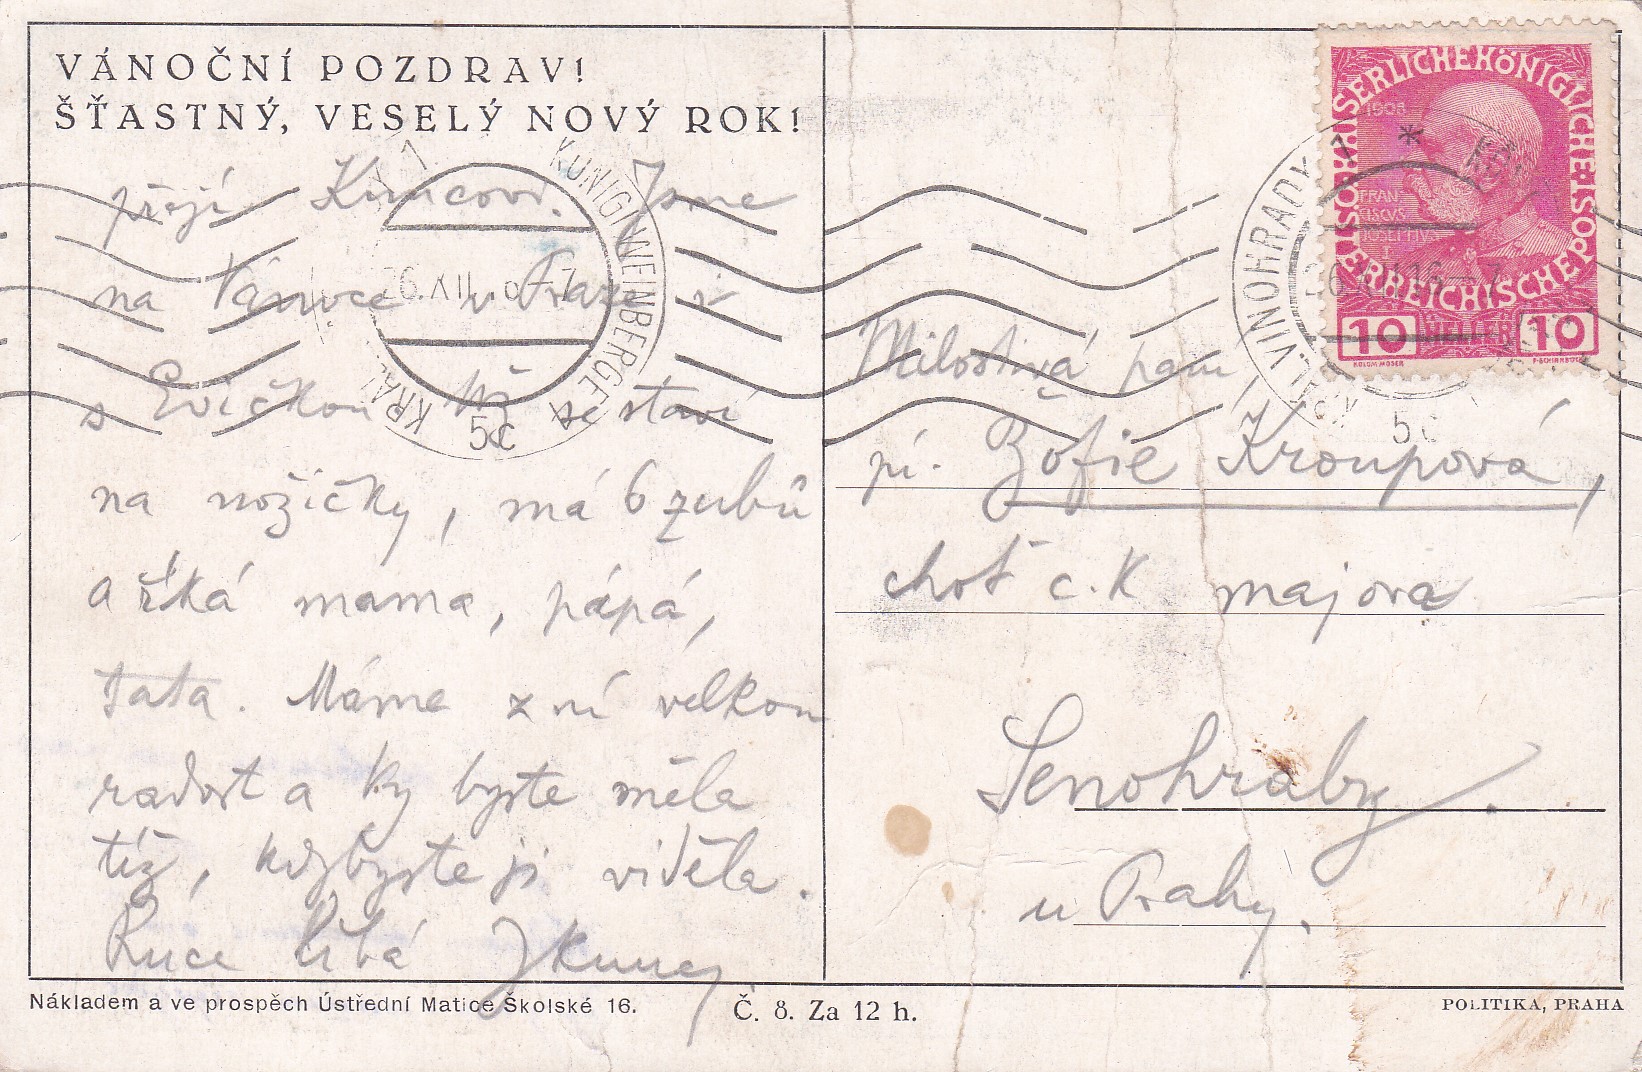 VÁNOČNÍ POZDRAV!
ŠŤASTNÝ, VESELÝ NOVÝ ROK!
přejí Kuncovi. Jsme
na Vánoce v Praze i
s Evičkou už se staví
na nožičky, má 6 zubů
a říká máma, pápá,
tata. Máme z ní velkou
radost a Vy byste měla
též, kdybyste ji viděla.
Ruce líbá JKuncz
Nákladem a ve prospěch Ústřední Matice Školské 16.
Č. 8. Za 12 h.
POLITIKA, PRAHA
Milostivá paní,
pí. Žofie Kroupová,
choť c. K majora
Senohraby.
u Prahy.
KAISERLICHE KÖNIGLICHE
ÖSTERREICHISCHE POST
1908
FRAN
CISCVS
IOSEPHVS
10 HELLER 10
KOLOM.MOSER
F.SCHIRNBÖCK
KUNIGL.WEINBERGE 1
26.XII.16-7
5c
VINOHRADY 1
26.XII.16-7